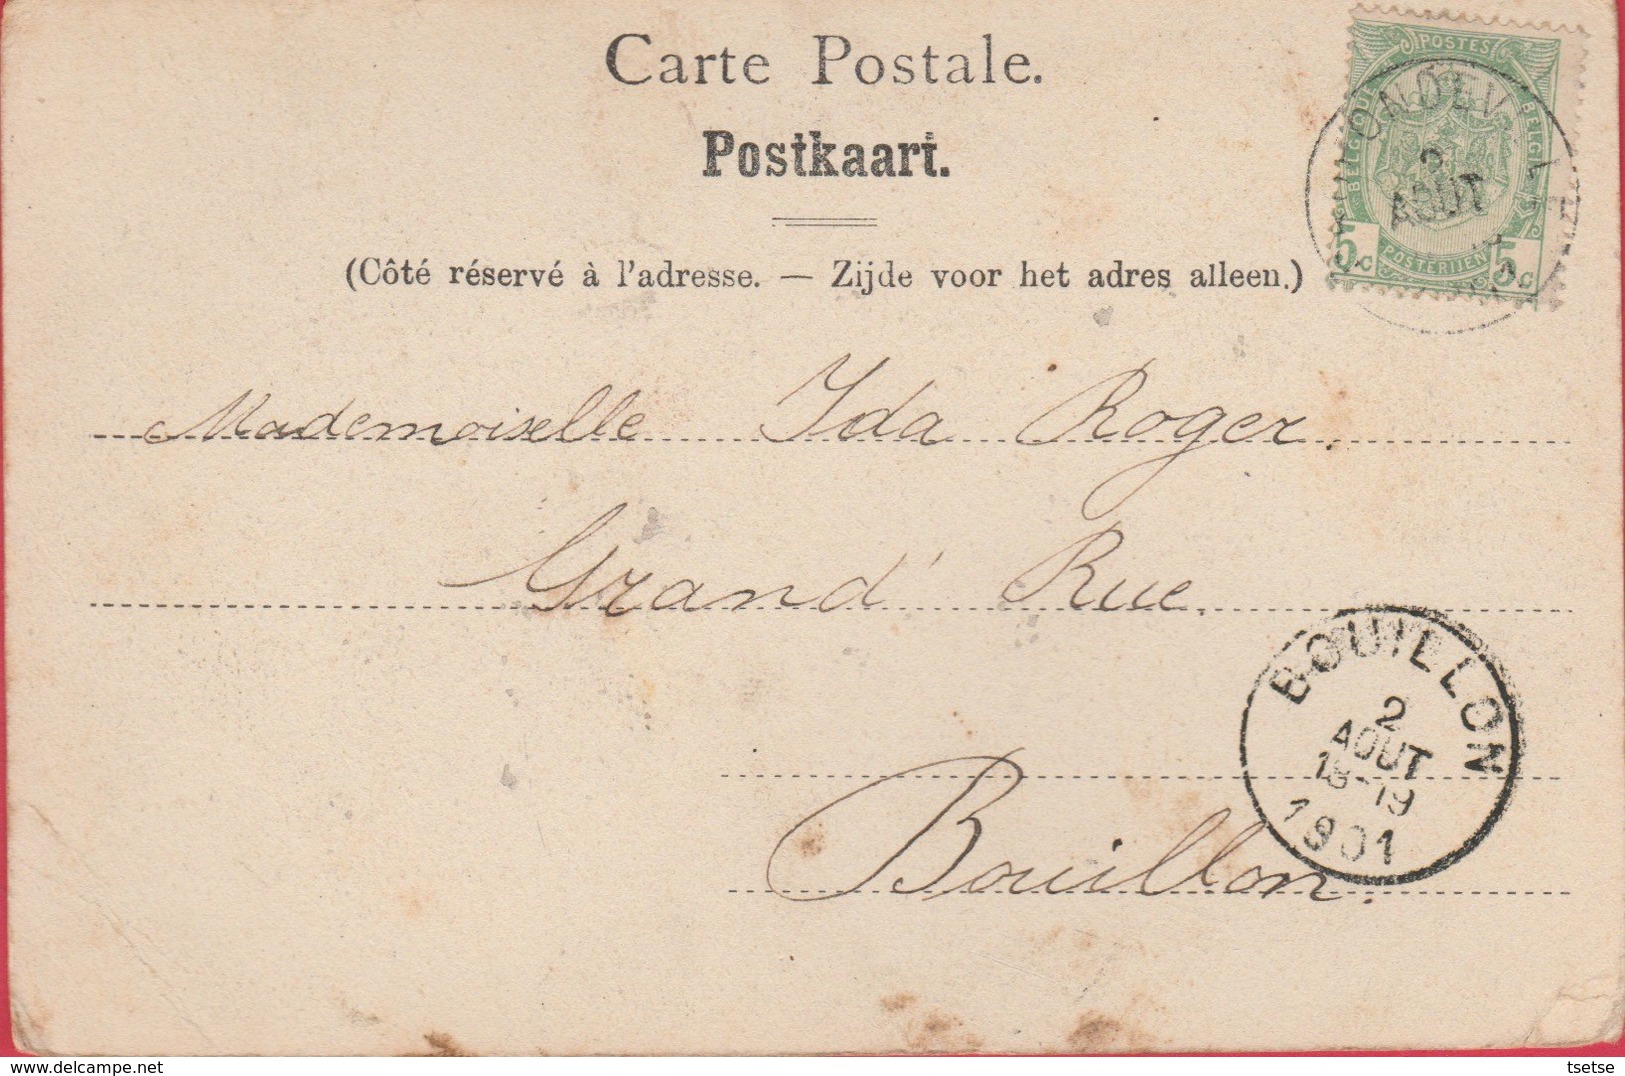 Carte Postale.
Postkaart.
(Côté réservé à l'adresse. — Zijde voor het adres alleen.)
POSTES
BELGIQUE
BELGIË
5c
POSTERIJEN
5c
2
AOUT
Mademoiselle Ida Roger.
Grand' Rue.
BOUILLON
2
AOUT
18-19
1901
Bouillon.
tsetse